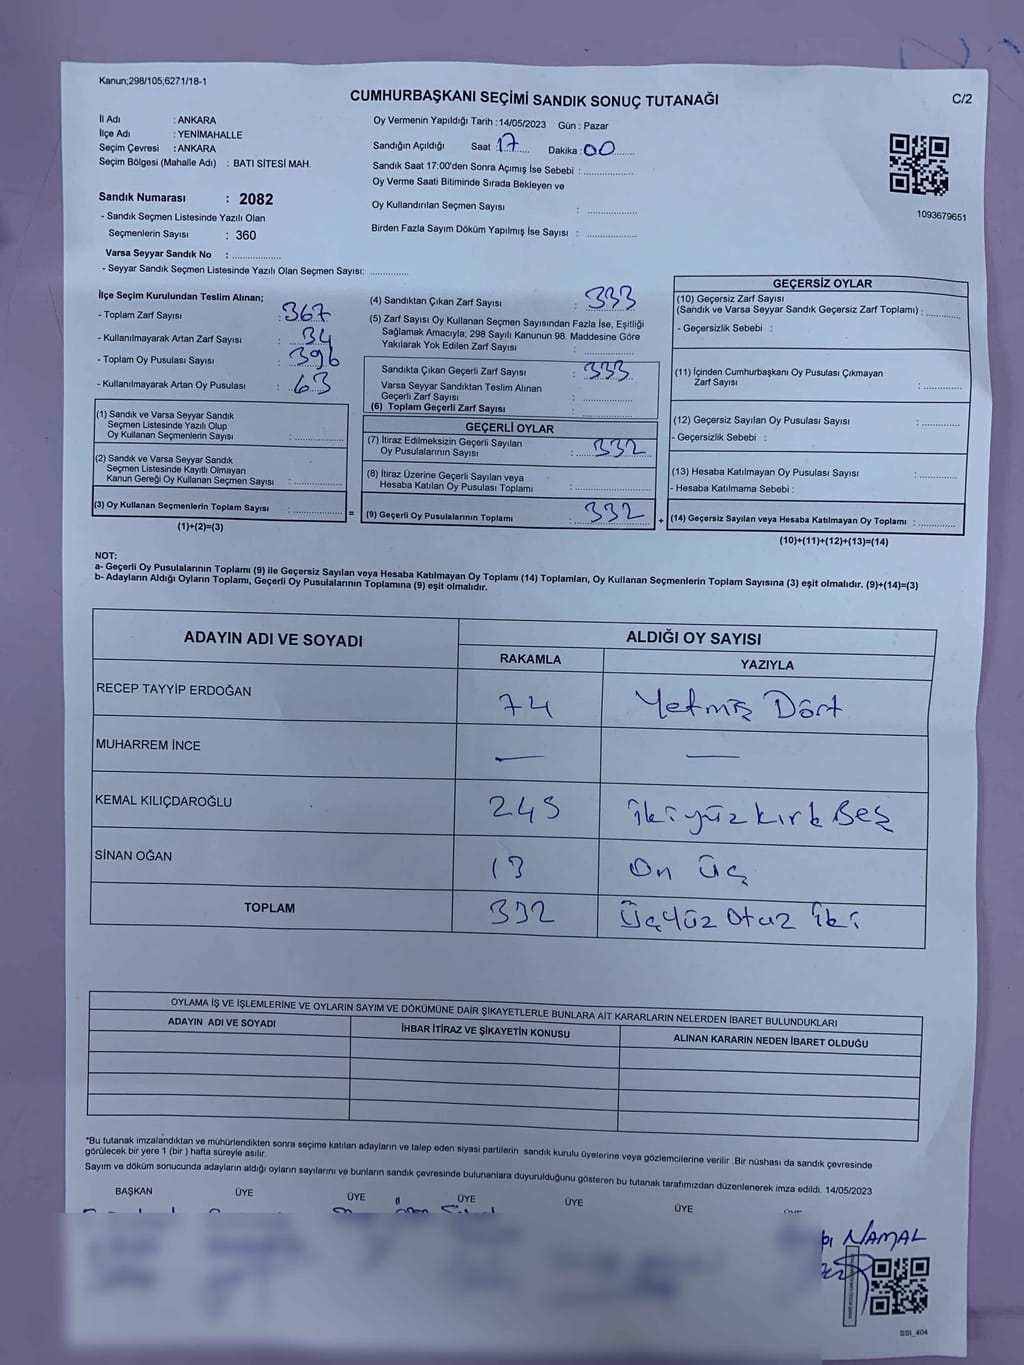 Kanun;298/105,6271/18-1
CUMHURBAŞKANI SEÇİMİ SANDIK SONUÇ TUTANAĞI
C/2
İl Adı : ANKARA
İlçe Adı : YENİMAHALLE
Seçim Çevresi : ANKARA
Seçim Bölgesi (Mahalle Adı) : BATI SİTESİ MAH.
Sandık Numarası : 2082
- Sandık Seçmen Listesinde Yazılı Olan
Seçmenlerin Sayısı : 360
Varsa Seyyar Sandık No : ..............
- Seyyar Sandık Seçmen Listesinde Yazılı Olan Seçmen Sayısı: ............
Oy Vermenin Yapıldığı Tarih :14/05/2023 Gün : Pazar
Sandığın Açıldığı Saat : 17 Dakika : 00
Sandık Saat 17:00'den Sonra Açımış İse Sebebi : ..............
Oy Verme Saati Bitiminde Sırada Bekleyen ve
Oy Kullandırılan Seçmen Sayısı : ..............
Birden Fazla Sayım Döküm Yapılmış İse Sayısı : ..............
1093679651
İlçe Seçim Kurulundan Teslim Alınan;
- Toplam Zarf Sayısı : 367
- Kullanılmayarak Artan Zarf Sayısı : 34
- Toplam Oy Pusulası Sayısı : 396
- Kullanılmayarak Artan Oy Pusulası : 63
(1) Sandık ve Varsa Seyyar Sandık
Seçmen Listesinde Yazılı Olup
Oy Kullanan Seçmenlerin Sayısı : ..............
(2) Sandık ve Varsa Seyyar Sandık
Seçmen Listesinde Kayıtlı Olmayan
Kanun Gereği Oy Kullanan Seçmen Sayısı : ..............
(3) Oy Kullanan Seçmenlerin Toplam Sayısı : ..............
(1)+(2)=(3)
=
(4) Sandıktan Çıkan Zarf Sayısı : 333
(5) Zarf Sayısı Oy Kullanan Seçmen Sayısından Fazla İse, Eşitliği
Sağlamak Amacıyla; 298 Sayılı Kanunun 98. Maddesine Göre
Yakılarak Yok Edilen Zarf Sayısı : ..............
Sandıkta Çıkan Geçerli Zarf Sayısı : 333
Varsa Seyyar Sandıktan Teslim Alınan
Geçerli Zarf Sayısı : ..............
(6) Toplam Geçerli Zarf Sayısı : ..............
GEÇERLİ OYLAR
(7) İtiraz Edilmeksizin Geçerli Sayılan
Oy Pusulalarının Sayısı : 332
(8) İtiraz Üzerine Geçerli Sayılan veya
Hesaba Katılan Oy Pusulası Toplamı : ..............
(9) Geçerli Oy Pusulalarının Toplamı : 332
+
GEÇERSİZ OYLAR
(10) Geçersiz Zarf Sayısı
(Sandık ve Varsa Seyyar Sandık Geçersiz Zarf Toplamı) : ..............
- Geçersizlik Sebebi :
(11) İçinden Cumhurbaşkanı Oy Pusulası Çıkmayan
Zarf Sayısı : ..............
(12) Geçersiz Sayılan Oy Pusulası Sayısı : ..............
- Geçersizlik Sebebi :
(13) Hesaba Katılmayan Oy Pusulası Sayısı : ..............
- Hesaba Katılmama Sebebi :
(14) Geçersiz Sayılan veya Hesaba Katılmayan Oy Toplamı : ..............
(10)+(11)+(12)+(13)=(14)
NOT:
a- Geçerli Oy Pusulalarının Toplamı (9) ile Geçersiz Sayılan veya Hesaba Katılmayan Oy Toplamı (14) Toplamları, Oy Kullanan Seçmenlerin Toplam Sayısına (3) eşit olmalıdır. (9)+(14)=(3)
b- Adayların Aldığı Oyların Toplamı, Geçerli Oy Pusulalarının Toplamına (9) eşit olmalıdır.
ADAYIN ADI VE SOYADI ALDIĞI OY SAYISI
RAKAMLA YAZIYLA
RECEP TAYYİP ERDOĞAN 74 Yetmiş Dört
MUHARREM İNCE — —
KEMAL KILIÇDAROĞLU 245 iki yüz kırk Beş
SİNAN OĞAN 13 On üç
TOPLAM 332 Üçyüz Otuz iki
OYLAMA İŞ VE İŞLEMLERİNE VE OYLARIN SAYIM VE DÖKÜMÜNE DAİR ŞİKAYETLERLE BUNLARA AİT KARARLARIN NELERDEN İBARET BULUNDUKLARI
ADAYIN ADI VE SOYADI İHBAR İTİRAZ VE ŞİKAYETİN KONUSU ALINAN KARARIN NEDEN İBARET OLDUĞU
*Bu tutanak imzalandıktan ve mühürlendikten sonra seçime katılan adayların ve talep eden siyasi partilerin sandık kurulu üyelerine veya gözlemcilerine verilir .Bir nüshası da sandık çevresinde
görülecek bir yere 1 (bir ) hafta süreyle asılır.
Sayım ve döküm sonucunda adayların aldığı oyların sayılarını ve bunların sandık çevresinde bulunanlara duyurulduğunu gösteren bu tutanak tarafımızdan düzenlenerek imza edildi. 14/05/2023
BAŞKAN ÜYE ÜYE ÜYE ÜYE ÜYE
NAMAL
SSI_404